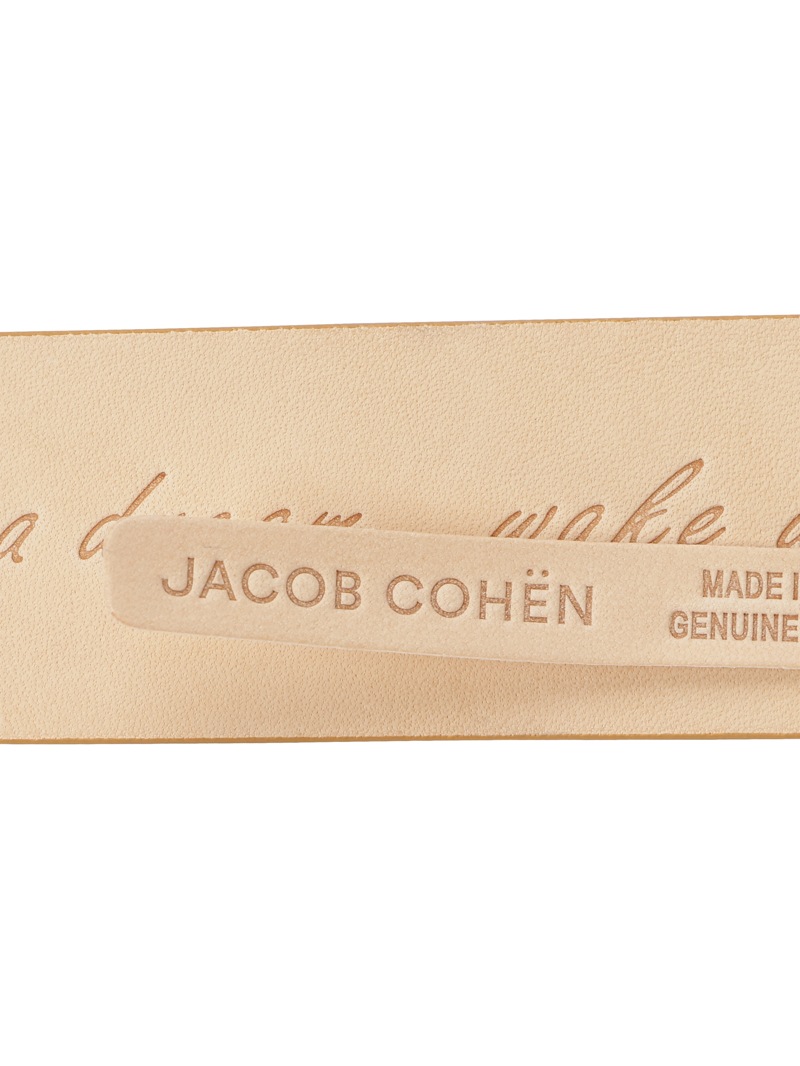 a dream wake
JACOB COHËN
MADE I
GENUINE